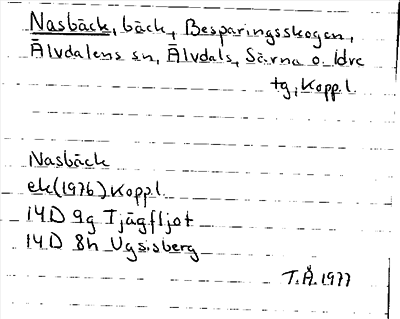 Nasbäck, bäck, Besparingsskogen,
Älvdalens sn, Älvdals, Särna o. Idre
tg, Koppl.
Nasbäck
ek (1976) Koppl.
14D 9g Tjägfljot
14D 8h Ugsisberg
T.Å. 1977